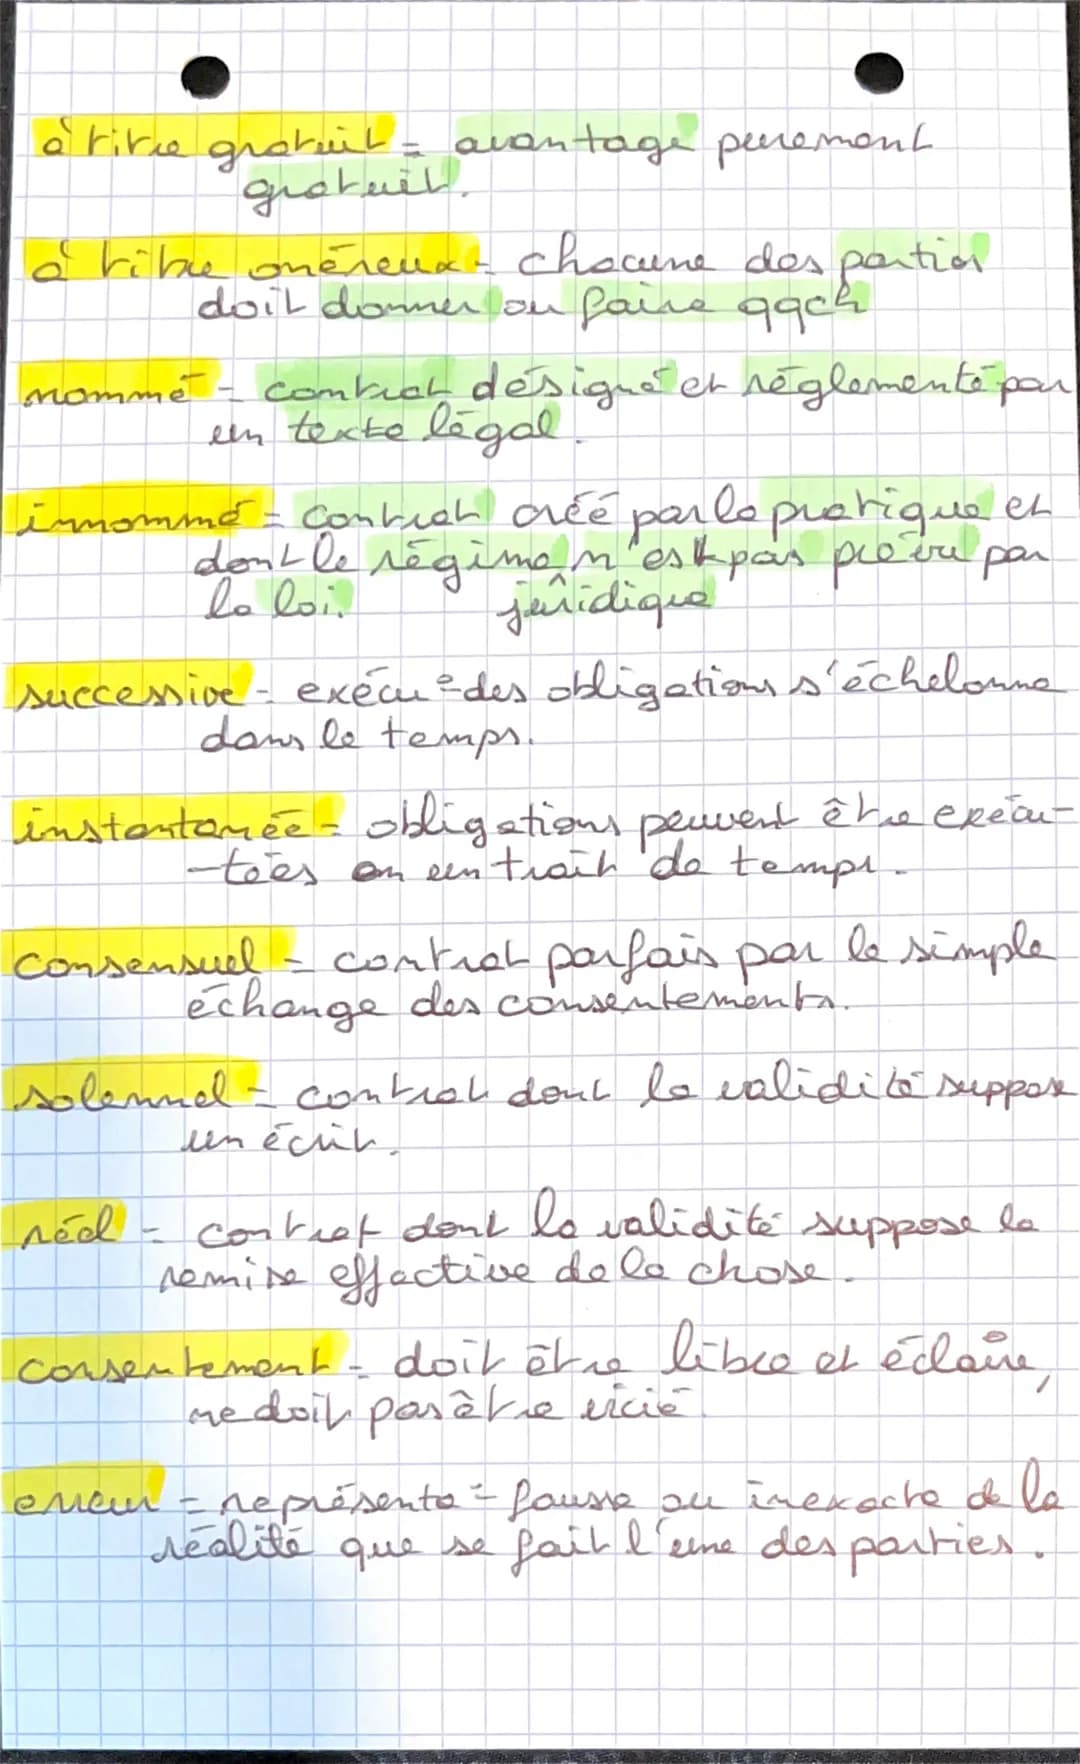 à titre gratuit = avantage purement
gratuit.
à titre onéreux = chacune des parties
doit donner ou faire qqch
nommé = contrat désigné et réglementé par
un texte légal.
innommé = contrat créé par la pratique et
dont le régime n'est pas prévu par
la loi. juridique
successive = exécu° des obligations s'échelonne
dans le temps.
instantanée = obligations peuvent être exécu-
-tées en un trait de temps.
consensuel = contrat parfais par le simple
échange des consentements.
solennel = contrat dont la validité suppose
un écrit.
réel = contrat dont la validité suppose la
remise effective de la chose.
consentement = doit être libre et éclairé,
ne doit pas être vicié.
erreur = représenta° fausse ou inexacte de la
réalité que se fait l'une des parties.